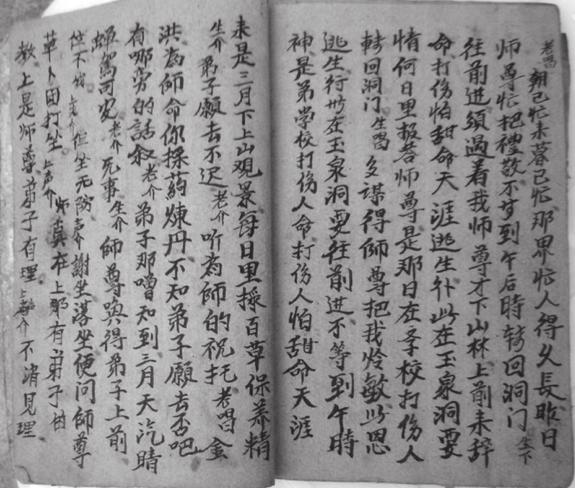 老唱 朝已忙来暮已忙那界忙人得久長昨日
师尊忙把禮敬不步到午后時轉回洞门 生下
往前進須過着我师尊才下山林上前耒辞
命打伤怕甜命天涯逃生补此在玉泉洞要
情何日里报答师尊是那日在孝校打伤人
轉回洞门 生唱 多謀得师尊把我怜敏此恩
逃生行此在玉泉洞要往前進不等到午時
神是弟学校打伤人命打伤人怕甜命天涯
耒是三月下上山观景每日里採百草保养精
生介 弟子願去不迟 老介 听为师的祝托 老唱 金
洪为师命你採药煉丹不知弟子願去否吧
有哪穷的話叙 老介 弟子那嘈知到三月天汽晴
駕可安 老介 死事 生介 师尊喚得弟子上前
不 但坐无防 介 謝坐落坐便问师尊
草卜団打坐 上声介 师真在上那有弟子
教上是师尊弟子有理 上介 不消見理